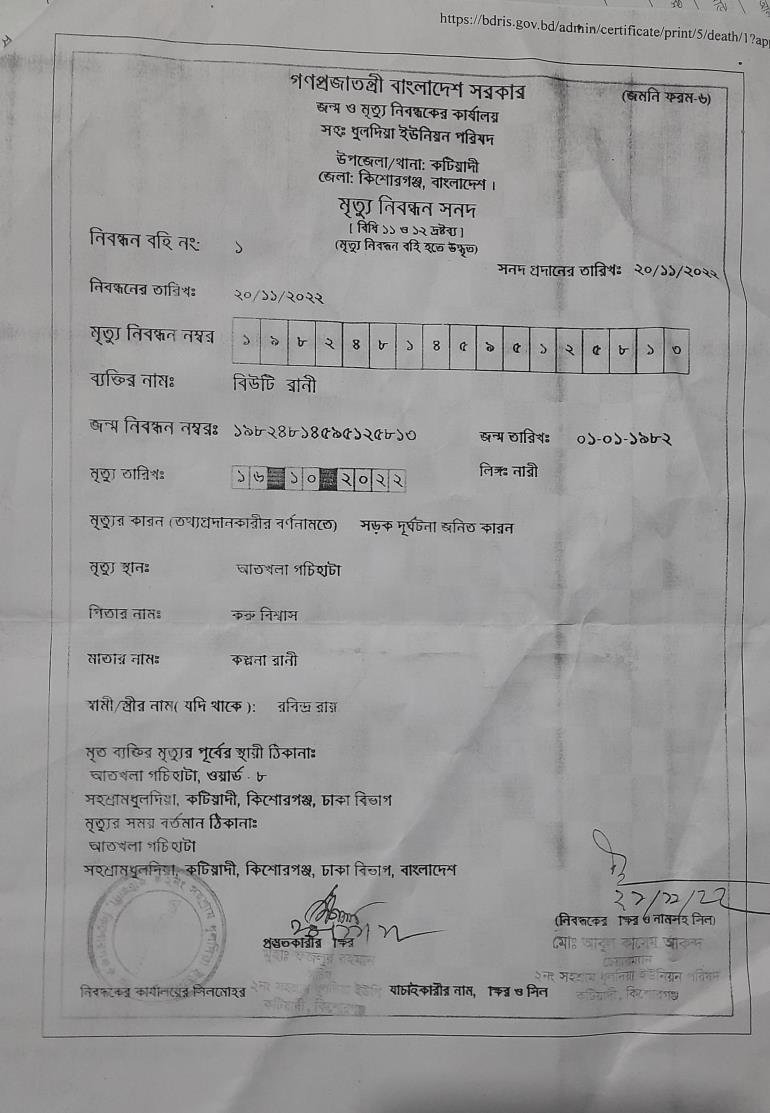 https://bdris.gov.bd/admin/certificate/print/5/death/1?ap
গণপ্রজাতন্ত্রী বাংলাদেশ সরকার
(জমনি ফরম-৬)
জন্ম ও মৃত্যু নিবন্ধকের কার্যালয়
সহঃ ধুলদিয়া ইউনিয়ন পরিষদ
উপজেলা/থানা: কটিয়াদী
জেলা: কিশোরগঞ্জ, বাংলাদেশ।
মৃত্যু নিবন্ধন সনদ
[ বিধি ১১ ও ১২ দ্রষ্টব্য ]
(মৃত্যু নিবন্ধন বহি হতে উদ্ধৃত)
নিবন্ধন বহি নং: ১
সনদ প্রদানের তারিখঃ ২০/১১/২০২২
নিবন্ধনের তারিখঃ ২০/১১/২০২২
মৃত্যু নিবন্ধন নম্বর ১ ৯ ৮ ২ ৪ ৮ ১ ৪ ৫ ৯ ৫ ১ ২ ৫ ৮ ১ ৩
ব্যক্তির নামঃ বিউটি রানী
জন্ম নিবন্ধন নম্বরঃ ১৯৮২৪৮১৪৫৯৫১২৫৮১৩ জন্ম তারিখঃ ০১-০১-১৯৮২
মৃত্যু তারিখঃ ১৬ ১০ ২০২২ লিঙ্গঃ নারী
মৃত্যুর কারন (তথ্যপ্রদানকারীর বর্ণনামতে) সড়ক দূর্ঘটনা জনিত কারন
মৃত্যু স্থানঃ আতখলা গচিহাটা
পিতার নামঃ কত্রু বিশ্বাস
মাতার নামঃ কল্পনা রানী
স্বামী/স্ত্রীর নাম( যদি থাকে ): রবিন্দ্র রায়
মৃত ব্যক্তির মৃত্যুর পূর্বের স্থায়ী ঠিকানাঃ
আতখলা গচিহাটা, ওয়ার্ড - ৮
সহশ্রামধুলদিয়া, কটিয়াদী, কিশোরগঞ্জ, ঢাকা বিভাগ
মৃত্যুর সময় বর্তমান ঠিকানাঃ
আতখলা গচিহাটা
সহশ্রামধুলদিয়া, কটিয়াদী, কিশোরগঞ্জ, ঢাকা বিভাগ, বাংলাদেশ
(নিবন্ধকের স্বাক্ষর ও নামসহ সিল)
প্রস্তুতকারীর স্বাক্ষর
মোঃ আবুল কাসেম আকন্দ
চেয়ারম্যান
২নং সহশ্রাম ধুলদিয়া ইউনিয়ন পরিষদ
কটিয়াদী, কিশোরগঞ্জ
নিবন্ধকের কার্যালয়ের সিলমোহর
কটিয়াদী, কিশোরগঞ্জ
যাচাইকারীর নাম, স্বাক্ষর ও সিল